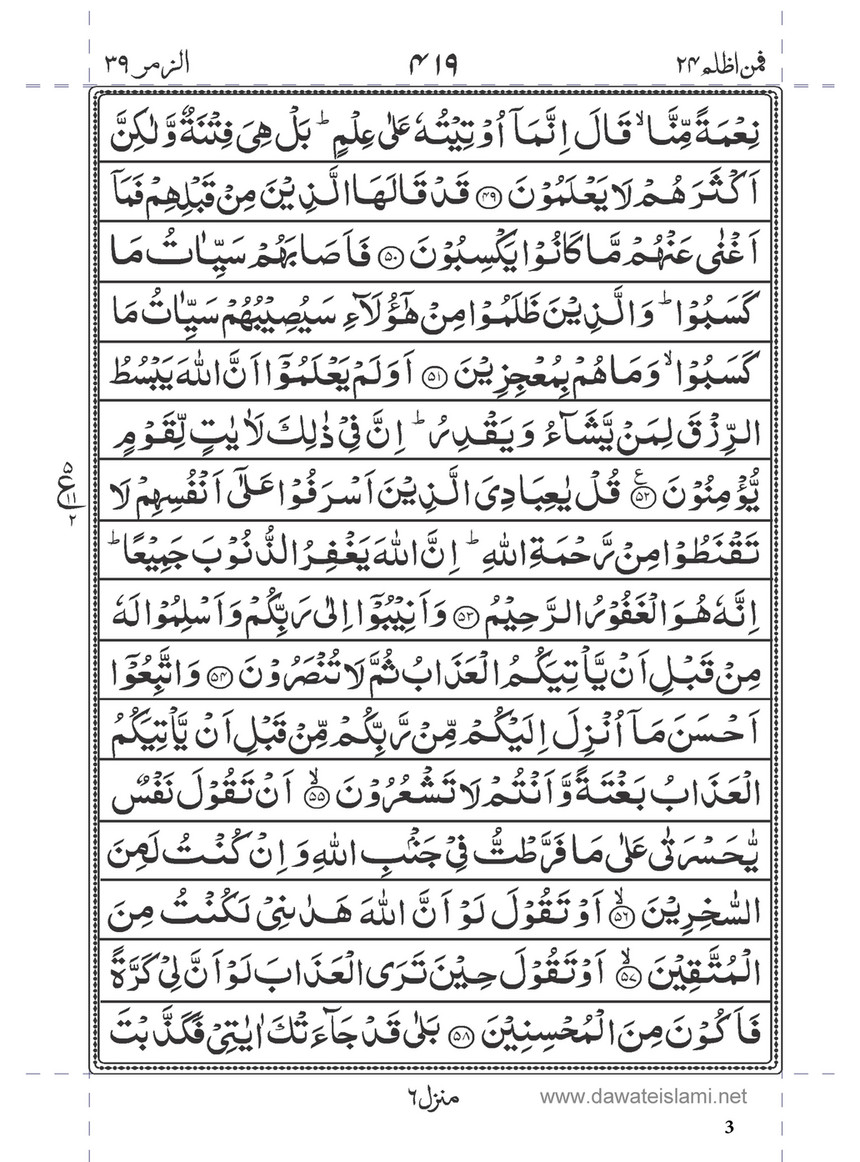 فمن اظلم ۲۴ ۴۱۹ الزمر ۳۹
نِعْمَةً مِّنَّا ۙ قَالَ اِنَّمَاۤ اُوْتِیْتُهٗ عَلٰى عِلْمٍ ؕ بَلْ هِیَ فِتْنَةٌ وَّ لٰكِنَّ
اَكْثَرَهُمْ لَا یَعْلَمُوْنَ ﴿۴۹﴾ قَدْ قَالَهَا الَّذِیْنَ مِنْ قَبْلِهِمْ فَمَاۤ
اَغْنٰى عَنْهُمْ مَّا كَانُوْا یَكْسِبُوْنَ ﴿۵۰﴾ فَاَصَابَهُمْ سَیِّاٰتُ مَا
كَسَبُوْا ؕ وَ الَّذِیْنَ ظَلَمُوْا مِنْ هٰۤؤُلَآءِ سَیُصِیْبُهُمْ سَیِّاٰتُ مَا
كَسَبُوْا ۙ وَ مَا هُمْ بِمُعْجِزِیْنَ ﴿۵۱﴾ اَوَ لَمْ یَعْلَمُوْۤا اَنَّ اللّٰهَ یَبْسُطُ
الرِّزْقَ لِمَنْ یَّشَآءُ وَ یَقْدِرُ ؕ اِنَّ فِیْ ذٰلِكَ لَاٰیٰتٍ لِّقَوْمٍ
یُّؤْمِنُوْنَ ﴿۵۲﴾ ع قُلْ یٰعِبَادِیَ الَّذِیْنَ اَسْرَفُوْا عَلٰۤى اَنْفُسِهِمْ لَا
۵ ع ۱۱ ۲
تَقْنَطُوْا مِنْ رَّحْمَةِ اللّٰهِ ؕ اِنَّ اللّٰهَ یَغْفِرُ الذُّنُوْبَ جَمِیْعًا ؕ
اِنَّهٗ هُوَ الْغَفُوْرُ الرَّحِیْمُ ﴿۵۳﴾ وَ اَنِیْبُوْۤا اِلٰى رَبِّكُمْ وَ اَسْلِمُوْا لَهٗ
مِنْ قَبْلِ اَنْ یَّاْتِیَكُمُ الْعَذَابُ ثُمَّ لَا تُنْصَرُوْنَ ﴿۵۴﴾ وَ اتَّبِعُوْۤا
اَحْسَنَ مَاۤ اُنْزِلَ اِلَیْكُمْ مِّنْ رَّبِّكُمْ مِّنْ قَبْلِ اَنْ یَّاْتِیَكُمُ
الْعَذَابُ بَغْتَةً وَّ اَنْتُمْ لَا تَشْعُرُوْنَ ﴿۵۵﴾ ۙ اَنْ تَقُوْلَ نَفْسٌ
یّٰحَسْرَتٰى عَلٰى مَا فَرَّطْتُّ فِیْ جَنْۢبِ اللّٰهِ وَ اِنْ كُنْتُ لَمِنَ
السّٰخِرِیْنَ ﴿۵۶﴾ ۙ اَوْ تَقُوْلَ لَوْ اَنَّ اللّٰهَ هَدٰىنِیْ لَكُنْتُ مِنَ
الْمُتَّقِیْنَ ﴿۵۷﴾ ۙ اَوْ تَقُوْلَ حِیْنَ تَرَى الْعَذَابَ لَوْ اَنَّ لِیْ كَرَّةً
فَاَكُوْنَ مِنَ الْمُحْسِنِیْنَ ﴿۵۸﴾ بَلٰى قَدْ جَآءَتْكَ اٰیٰتِیْ فَكَذَّبْتَ
منزل ۶
www.dawateislami.net
3